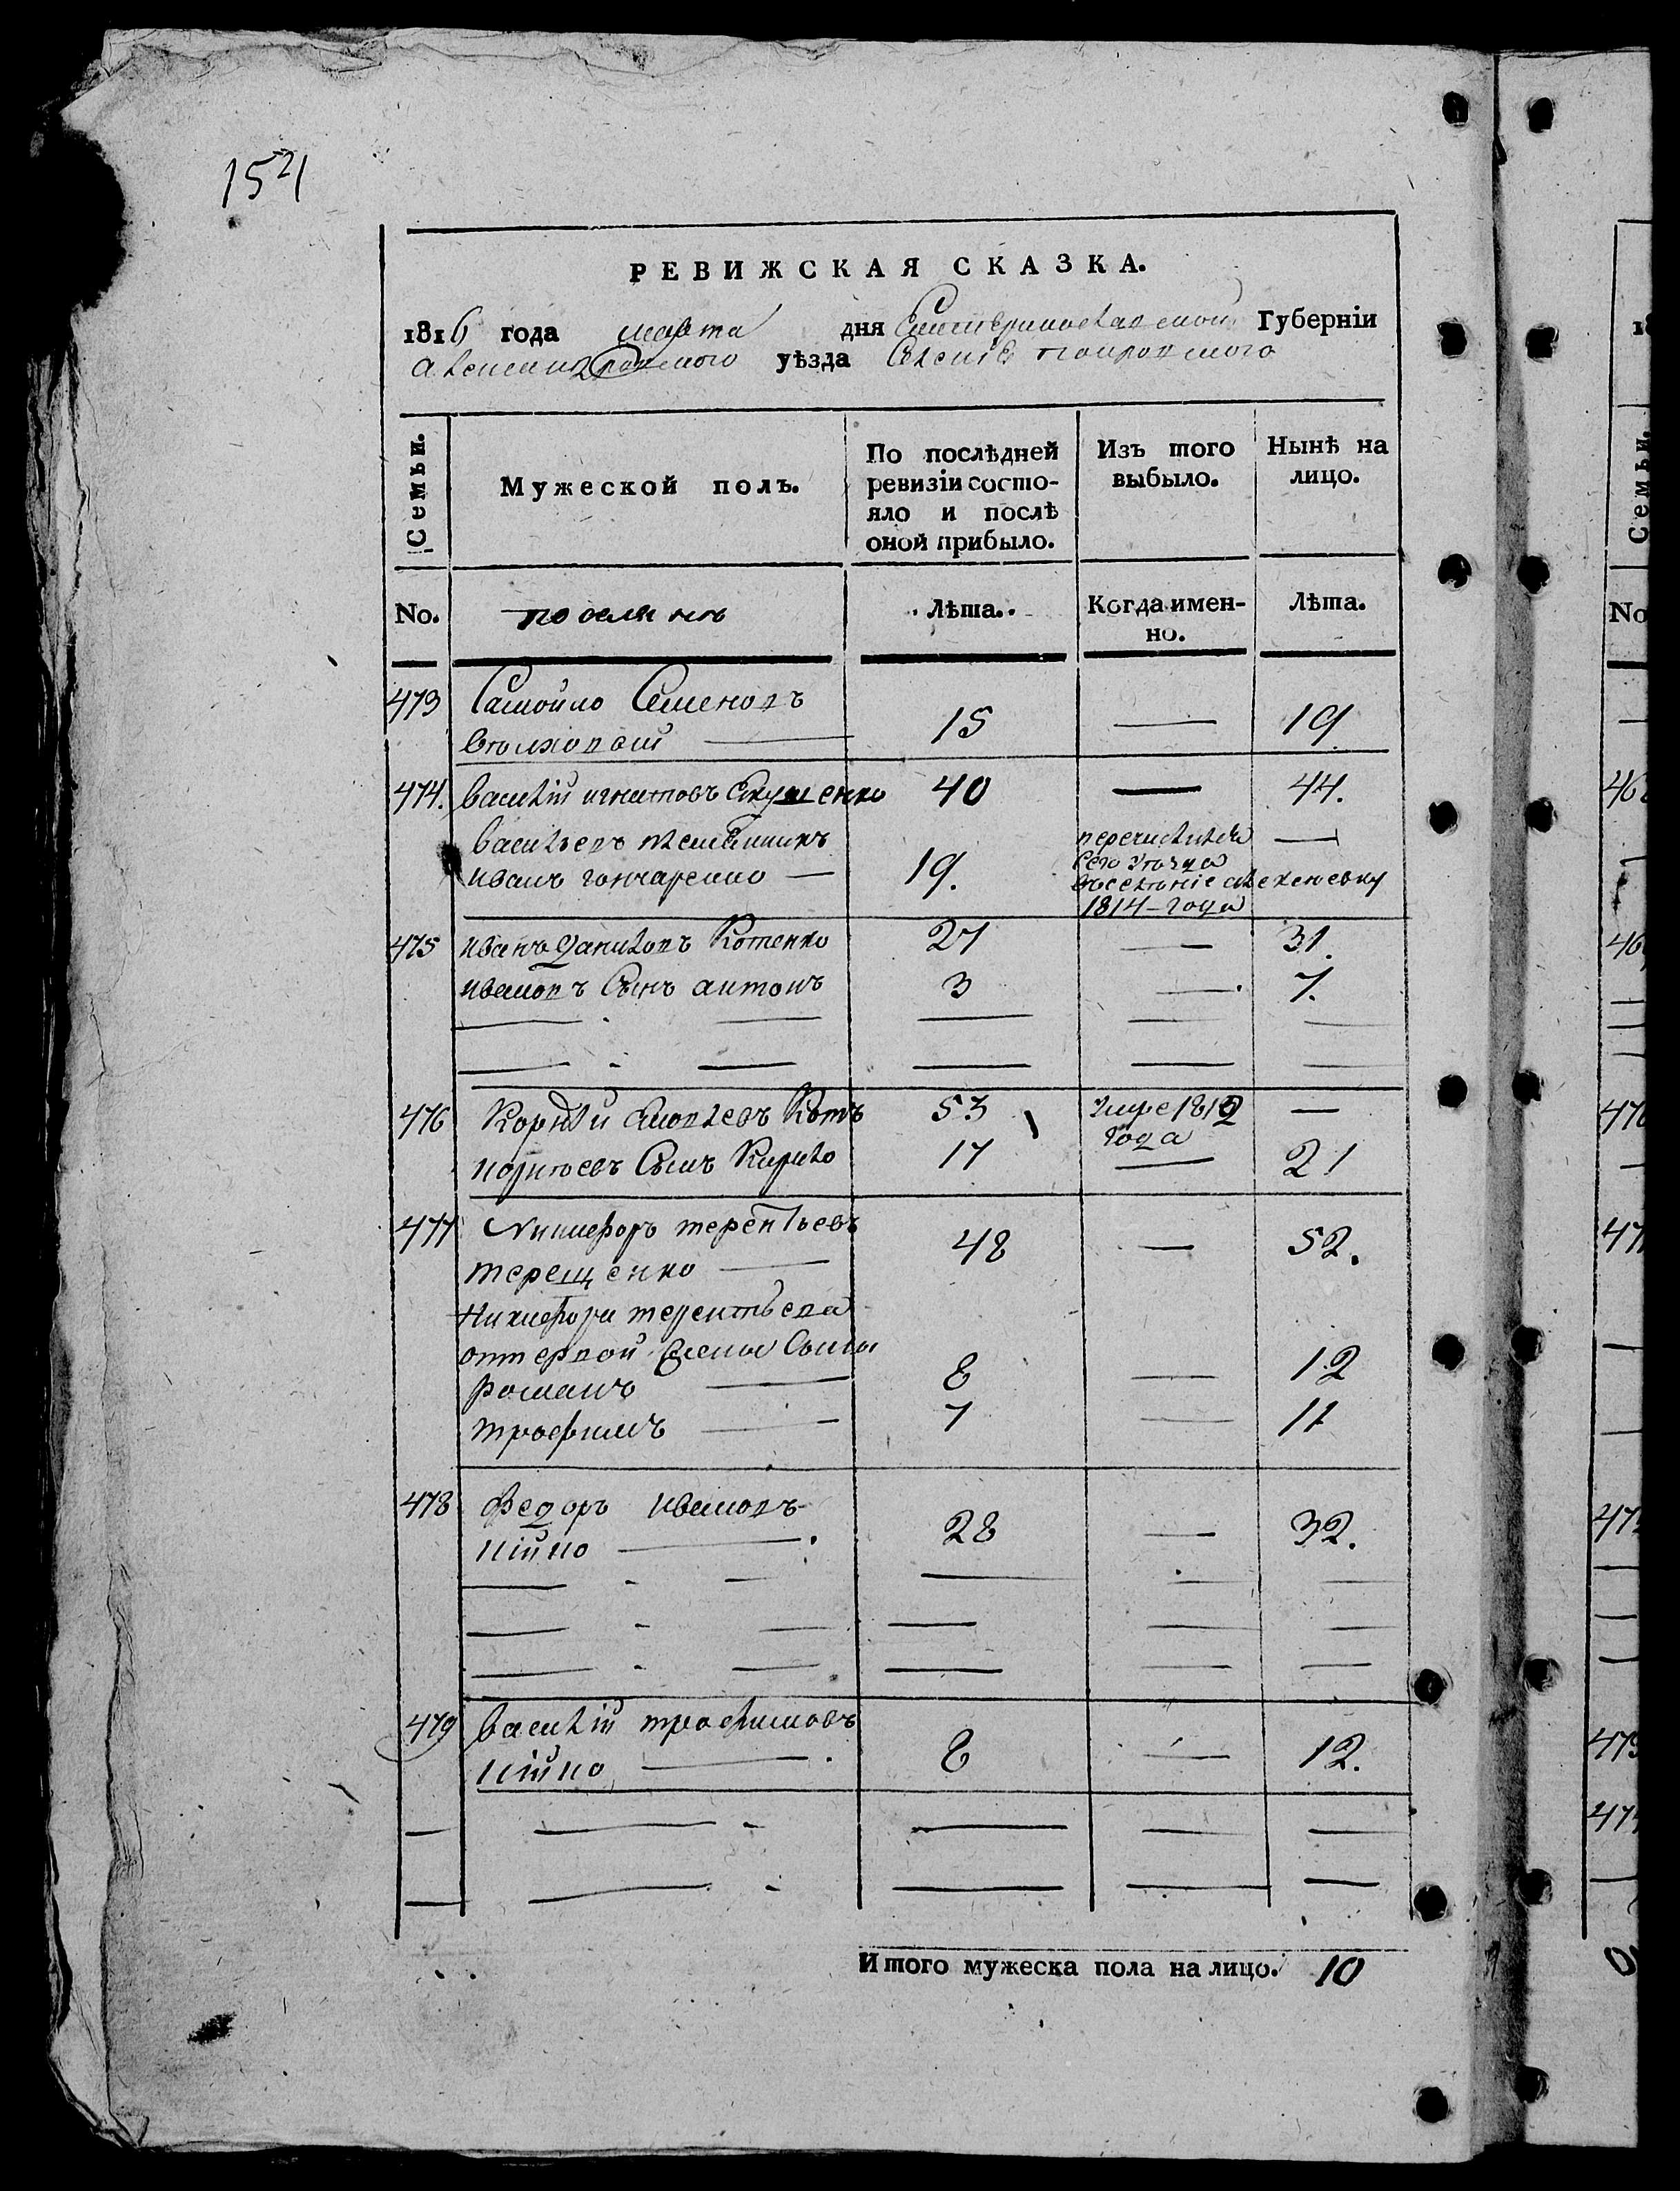 154
РЕВИЖСКАЯ СКАЗКА.
1816 года марта дня Екатеринославской Губерніи
александровского уѣзда Селенія покровского
Семьи.
Мужеской полъ.
По послѣдней ревизіи состо-
яло и послѣ
оной прибыло.
Изъ того
выбыло.
Нынѣ на
лицо.
No.
поселянъ
Лѣта.
Когда имен-
но.
Лѣта.
473 Самойло Семеновъ
15 — 19
474. василій игнатовъ 40 — 44.
васильевъ племянникъ
иванъ гончаренко — 19. перечисленъ —
сего уѣзда
въселеніе
1814-года
475 иванъ даниловъ Котенко 27 — 31.
ивановъ Сынъ антонъ 3 — 7.
476 Корнѣй Котъ 53 умре 1812 —
года
корнѣевъ Сынъ Кирило 17 — 21
477 Никифоръ терентьевъ
терещенко — 48 — 52.
Никифора терентьева
отпервой жены Сыны
романъ — 8 — 12
трофимъ — 7 — 11
478 федоръ ивановъ
кійко — 28 — 32.
479 василій трофимовъ
кійко — 8 — 12.
Итого мужеска пола на лицо. 10